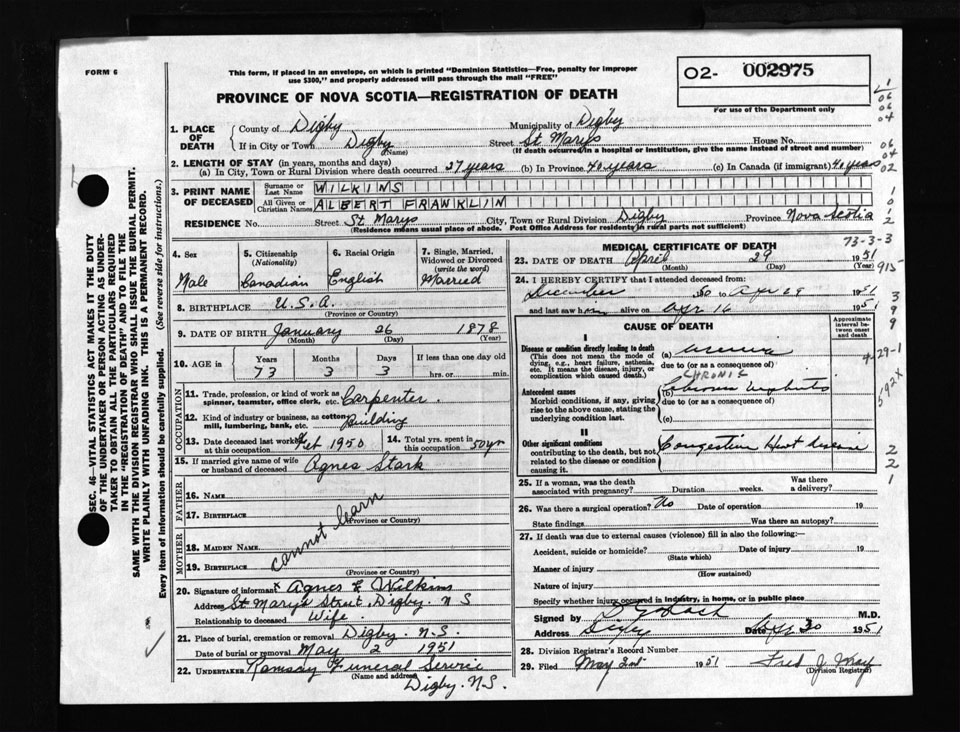 FORM 6
This form, if placed in an envelope, on which is printed "Dominion Statistics—Free, penalty for improper
use $300," and properly addressed will pass through the mail "FREE"
PROVINCE OF NOVA SCOTIA—REGISTRATION OF DEATH
02- 002975
For use of the Department only
1. PLACE OF DEATH
County of Digby Municipality of Digby
If in City or Town Digby (Name) Street St Marys House No.
(If death occurred in a hospital or institution, give the name instead of street and number)
2. LENGTH OF STAY (in years, months and days)
(a) In City, Town or Rural Division where death occurred 27 years (b) In Province 40 years (c) In Canada (if immigrant) 40 years
3. PRINT NAME OF DECEASED
Surname or Last Name WILKINS
All Given or Christian Names ALBERT FRANKLIN
RESIDENCE No. Street St Marys City, Town or Rural Division Digby Province Nova Scotia
(Residence means usual place of abode. Post Office Address for residents in rural parts not sufficient)
4. Sex
Male
5. Citizenship (Nationality)
Canadian
6. Racial Origin
English
7. Single, Married, Widowed or Divorced (write the word)
Married
8. BIRTHPLACE U.S.A.
(Province or Country)
9. DATE OF BIRTH January 26 1878
(Month) (Day) (Year)
10. AGE in Years Months Days If less than one day old
73 3 3 hrs. or min.
OCCUPATION
11. Trade, profession, or kind of work as spinner, teamster, office clerk, etc. Carpenter
12. Kind of industry or business, as cotton mill, lumbering, bank, etc. Building
13. Date deceased last worked at this occupation Feb 1950
14. Total yrs. spent in this occupation 50 yrs
15. If married give name of wife or husband of deceased Agnes Stark
FATHER
16. Name
17. Birthplace
(Province or Country)
cannot learn
MOTHER
18. Maiden Name
19. Birthplace
(Province or Country)
20. Signature of informant x Agnes F Wilkins
Address St Marys Street, Digby. N S
Relationship to deceased Wife
21. Place of burial, cremation or removal Digby. N.S.
Date of burial or removal May 2 1951
22. Undertaker Ramsay Funeral Service
(Name and address)
Digby. N.S.
MEDICAL CERTIFICATE OF DEATH
73-3-3
23. DATE OF DEATH April 29 1951
(Month) (Day) (Year)
915-
24. I HEREBY CERTIFY that I attended deceased from:
December 50 to Apr 29 1951
and last saw h alive on Apr 16 1951
CAUSE OF DEATH
Approximate interval between onset and death
I
Disease or condition directly leading to death
(This does not mean the mode of dying, e.g., heart failure, asthenia, etc. It means the disease, injury, or complication which caused death.)
(a) Uremia
due to (or as a consequence of)
CHRONIC
Antecedent causes
Morbid conditions, if any, giving rise to the above cause, stating the underlying condition last.
(b) Chronic Nephritis
due to (or as a consequence of)
(c)
592X
II
Other significant conditions contributing to the death, but not related to the disease or condition causing it.
Congestive Heart disease
25. If a woman, was the death associated with pregnancy? Duration weeks. Was there a delivery?
26. Was there a surgical operation? No Date of operation 19
State findings Was there an autopsy?
27. If death was due to external causes (violence) fill in also the following:—
Accident, suicide or homicide? Date of injury 19
(State which)
Manner of injury
(How sustained)
Nature of injury
Specify whether injury occurred in industry, in home, or in public place
Signed by M.D.
Address Digby Date Apr 30 1951
28. Division Registrar's Record Number
29. Filed May 2nd 1951 Fred J. May
(Division Registrar)
SEC. 46—VITAL STATISTICS ACT MAKES IT THE DUTY
OF THE UNDERTAKER OR PERSON ACTING AS UNDER-
TAKER TO OBTAIN ALL THE PARTICULARS REQUIRED
IN THE "REGISTRATION OF DEATH" AND TO FILE THE
SAME WITH THE DIVISION REGISTRAR WHO SHALL ISSUE THE BURIAL PERMIT.
WRITE PLAINLY WITH UNFADING INK. THIS IS A PERMANENT RECORD.
Every item of information should be carefully supplied. (See reverse side for instructions.)